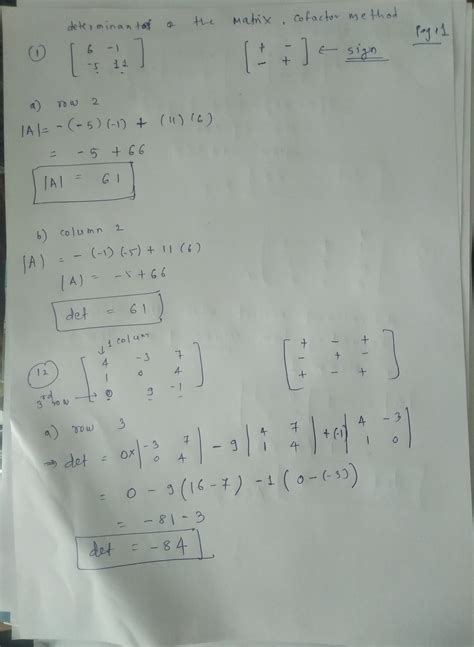 determinant of the matrix, cofactor method
Page 1
(1) [ 6 -1 -5 11 ] [ + - - + ] ← sign
a) row 2
|A| = -(-5)(-1) + (11)(6)
= -5 + 66
|A| = 61
b) column 2
|A| = -(-1)(-5) + 11(6)
|A| = -5 + 66
det = 61
↓ 1 colum
(12) [ 4 -3 7 1 0 4 0 9 -1 ] [ + - + - + - + - + ]
3rd row →
a) row 3
→ det = 0x | -3 7 0 4 | - 9 | 4 7 1 4 | + (-1) | 4 -3 1 0 |
= 0 - 9(16-7) - 1(0-(-3))
= -81 - 3
det = -84